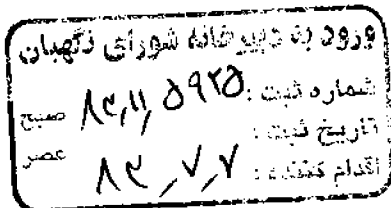 ورود به دبیرخانه شورای نگهبان
شماره ثبت : ۸۳٫۱۱٫۵۹۲۵ صبح
تاریخ ثبت :
اقدام کننده : ۸۳_۷_۷ عصر